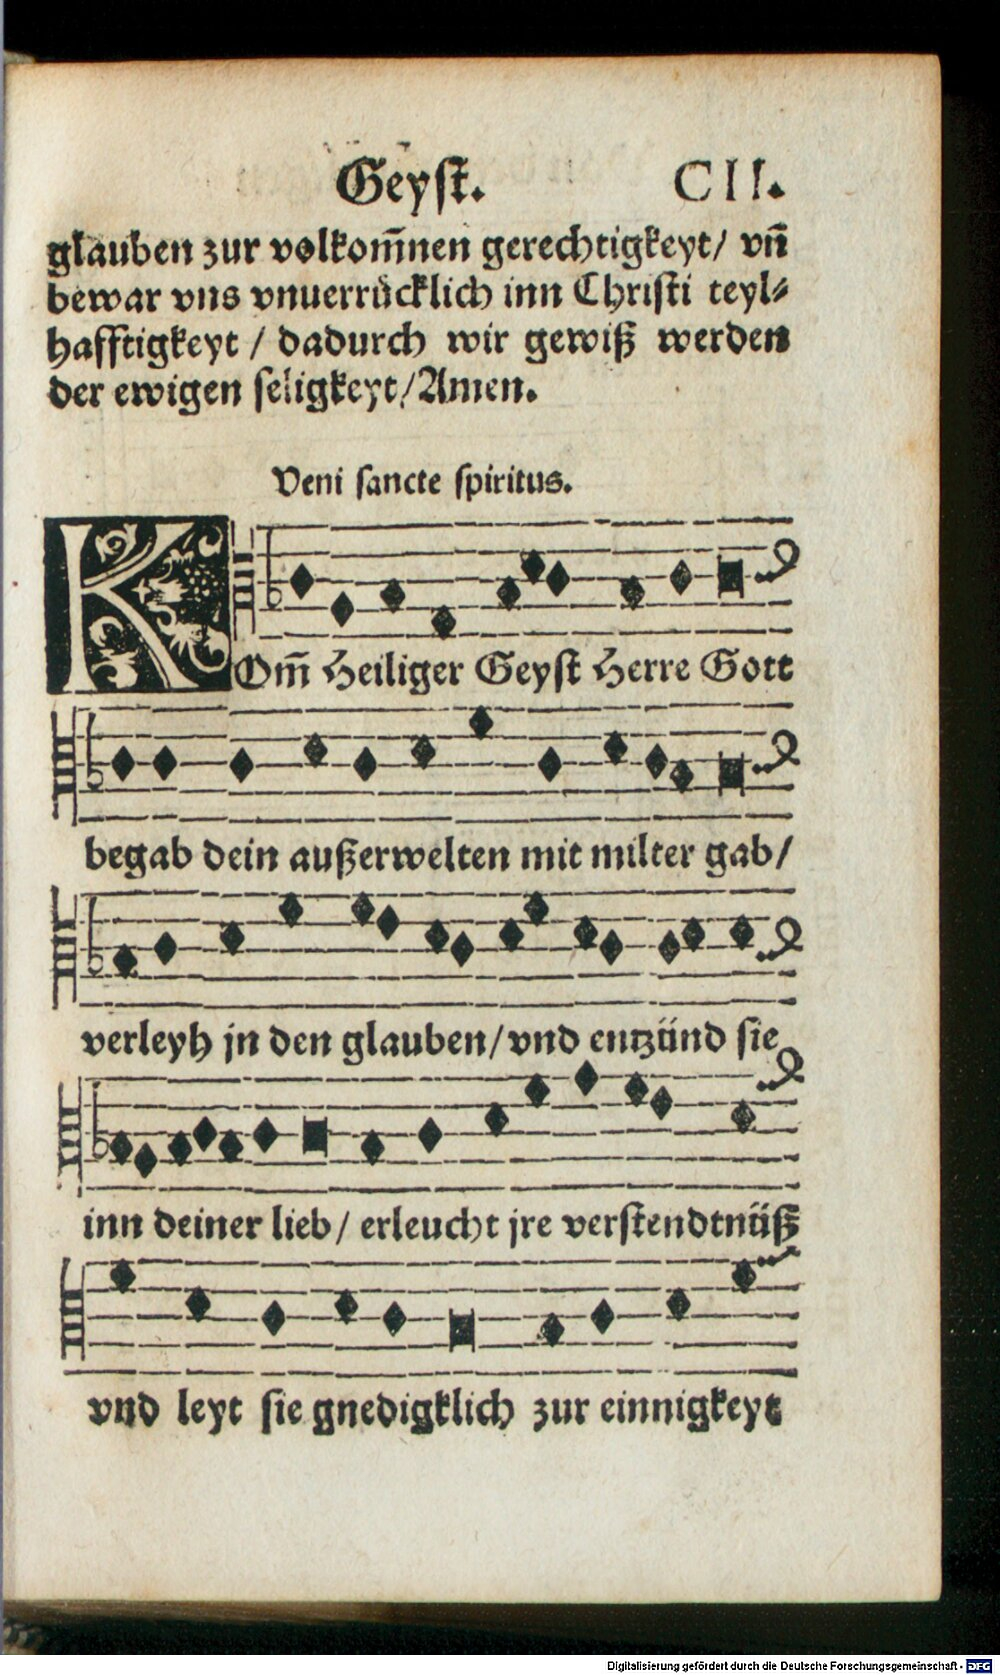 Geyſt. CII.
glauben zur volkom̃nen gerechtigkeyt/ vñ
bewar vns vnuerrücklich inn Chriſti teyl⸗
hafftigkeyt / dadurch wir gewiß werden
der ewigen ſeligkeyt/ Amen.
Veni ſancte ſpiritus.
KOm̃ Heiliger Geyſt Herre Gott
begab dein außerwelten mit milter gab/
verleyh jn den glauben/ vnd entzünd ſie
inn deiner lieb/ erleucht jre verſtendtnüß
vnd leyt ſie gnedigklich zur einnigkeyt
Digitalisierung gefördert durch die Deutsche Forschungsgemeinschaft - DFG